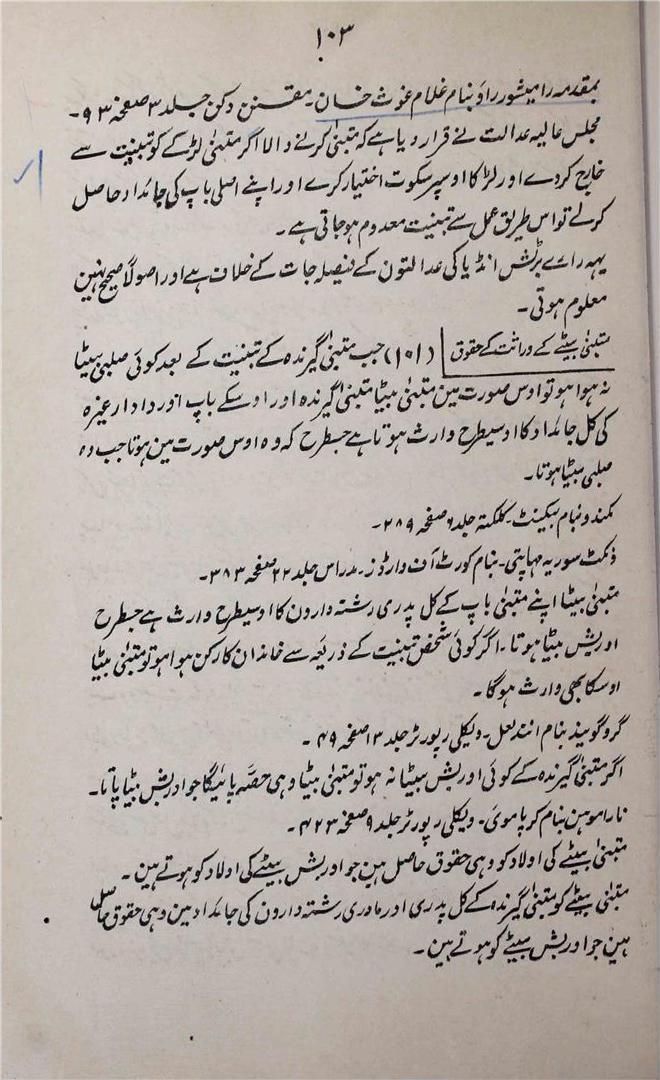 ۱۰۳
بمقدمہ رامیشور راؤ بنام غلام غوث خان۔ مقنن دکن جلد ۳ صفحہ ۹۳۔
مجلس عالیہ عدالت نے قرار دیا ہے کہ متبنٰی کرنے والا اگر متبنٰی لڑکے کو تبنیت سے
خارج کردے اور لڑکا اوسپر سکوت اختیار کرے اور اپنے اصلی باپ کی جائداد حاصل
کرلے تو اس طریق عمل سے تبنیت معدوم ہوجاتی ہے۔
یہہ رائے برٹش انڈیا کی عدالتون کے فیصلہ جات کے خلاف ہے اور اصولاً صحیح نہین
معلوم ہوتی۔
متبنٰی بیٹے کے وراثت کے حقوق (۱۰۱) جب متبنٰی گیرندہ کے تبنیت کے بعد کوئی صلبی بیٹا
نہ ہوا ہو تو اوس صورت مین متبنٰی بیٹا متبنٰی گیرندہ اور اوسکے باپ اور دادا وغیرہ
کی کل جائداد کا اوسیطرح وارث ہوتا ہے جسطرح کہ وہ اوس صورت مین ہوتا جب وہ
صلبی بیٹا ہوتا۔
مکندو بنام بیکینٹ۔ کلکتہ جلد ۶ صفحہ ۲۸۹۔
ونکٹ سوریہ مہاپتی۔ بنام کورٹ آف وارڈز۔ مدراس جلد ۲۲ صفحہ ۳۸۳۔
متبنٰی بیٹا اپنے متبنٰی باپ کے کل پدری رشتہ دارون کا اوسیطرح وارث ہے جسطرح
اوربش بیٹا ہوتا۔ اگر کوئی شخص تبنیت کے ذریعہ سے خاندان کا رکن ہوا ہو تو متبنٰی بیٹا
اوسکا بھی وارث ہوگا۔
گروگوبند بنام انند لعل۔ ویکلی رپورٹر جلد ۱۳ صفحہ ۴۹۔
اگر متبنٰی گیرندہ کے کوئی اوربش بیٹا نہ ہو تو متبنٰی بیٹا وہی حصّہ پائیگا جو اوربش بیٹا پاتا۔
تاراموہن بنام کرپاموی۔ ویکلی رپورٹر جلد ۹ صفحہ ۴۲۳۔
متبنٰی بیٹے کی اولاد کو وہی حقوق حاصل ہین جو اوربش بیٹے کی اولاد کو ہوتے ہین۔
متبنٰی بیٹے کو متبنٰی گیرندہ کے کل پدری اور مادری رشتہ دارون کی جائداد مین وہی حقوق حاصل
ہین جو اوربش بیٹے کو ہوتے ہین۔